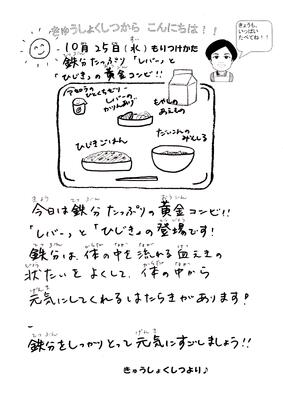 きゅうしょくしつから こんにちは!!
きょうも、
いっぱい
たべてね!!
10月25日(水)もりつけかた
鉄分たっぷり「レバー」と
「ひじき」の黄金コンビ!!
レバーの
かりんあげ
もやしの
あえもの
ひじきごはん
だいこんの
みそしる
今日は鉄分たっぷりの黄金コンビ!!
「レバー」と「ひじき」の登場です!
鉄分は、体の中を流れる血えきの
状たいをよくして、体の中から
元気にしてくれるはたらきがあります!
鉄分をしっかりとって元気にすごしましょう!!
きゅうしょくしつより♪